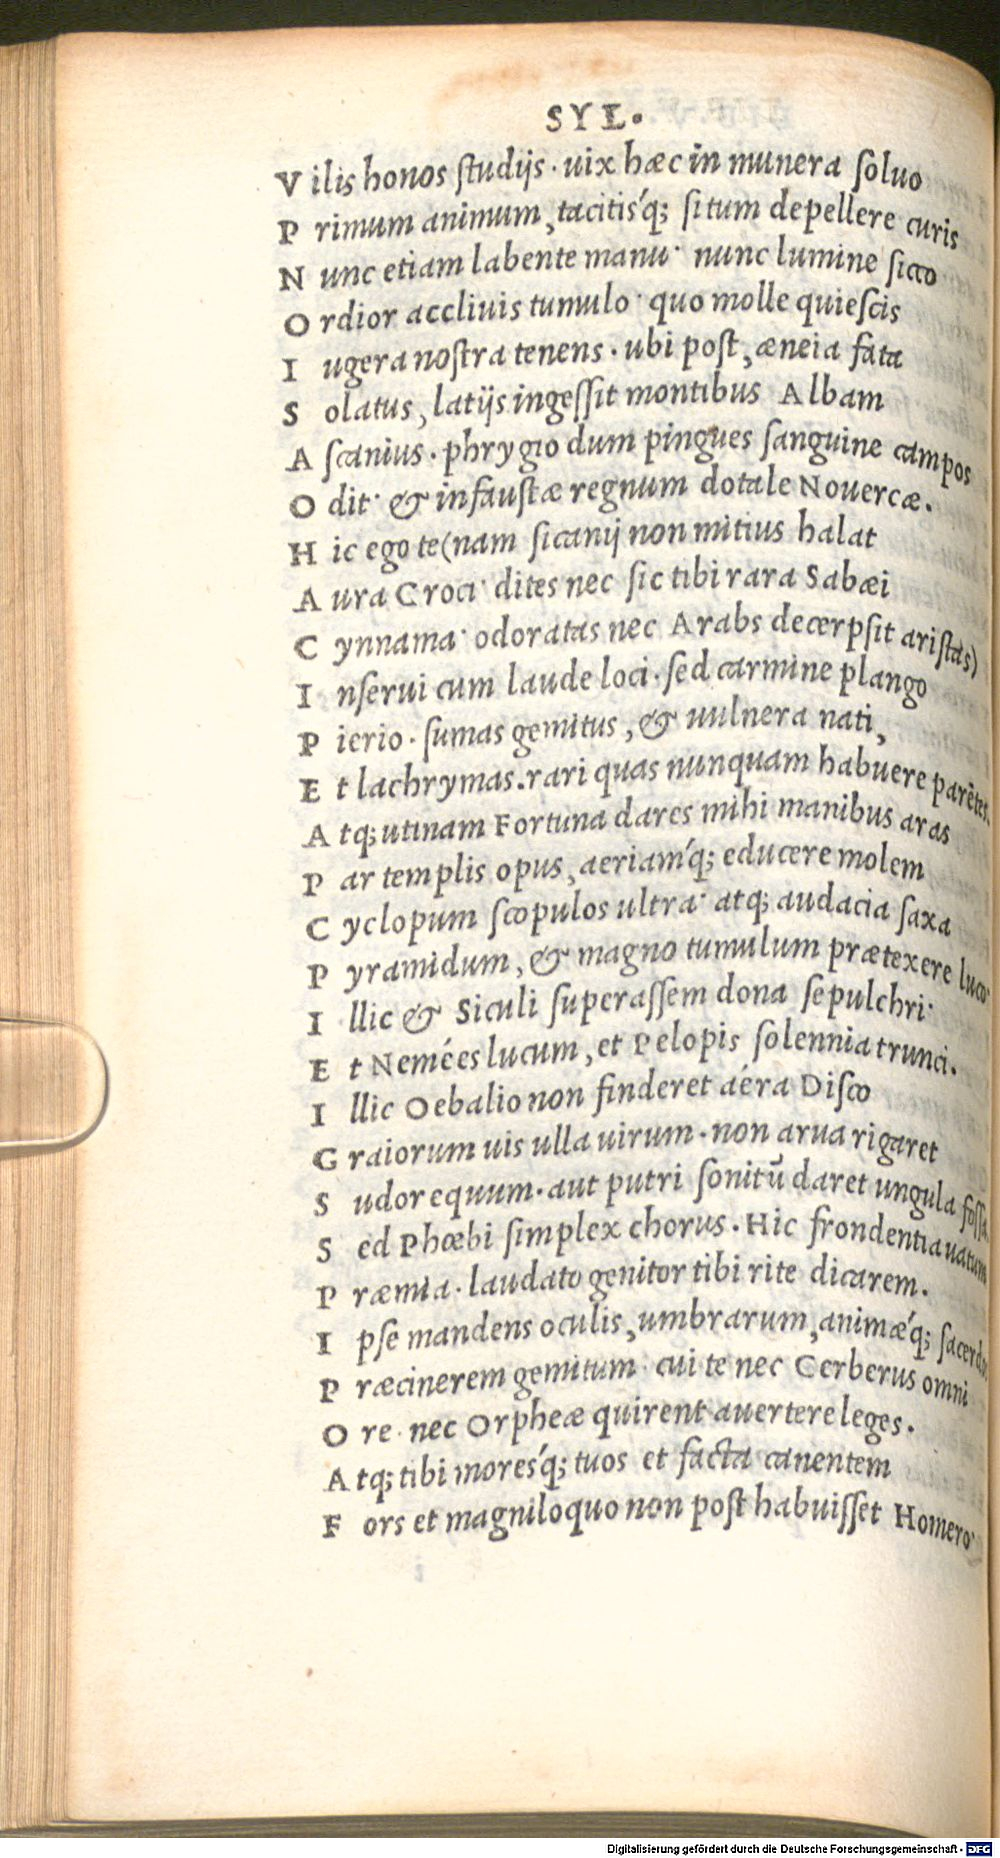 SYL.
V ilis honos ſtudijs . uix hæc in munera ſoluo
P rimum animum, tacitiśq; ſitum depellere curis
N unc etiam labente manu· nunc lumine ſicco
O rdior accliuis tumulo· quo molle quieſcis
I ugera noſtra tenens . ubi poſt, æneia fata
S olatus, latijs ingeſſit montibus Albam
A ſcanius . phrygio dum pingues ſanguine campos
O dit· & infauſtæ regnum dotale Nouercæ.
H ic ego te(nam ſicanij non mitius halat
A ura Croci· dites nec ſic tibi rara Sabæi
C ynnama· odoratas nec Arabs decerpſit ariſtas)
I nſerui cum laude loci . ſed carmine plango
P ierio . ſumas gemitus, & uulnera nati,
E t lachrymas. rari quas nunquam habuere parētes.
A tq; utinam Fortuna dares mihi manibus aras
P ar templis opus, aeriaḿq; educere molem
C yclopum ſcopulos ultra· atq; audacia ſaxa
P yramidum, & magno tumulum prætexere luco·
I llic & Siculi ſuperaſſem dona ſepulchri·
E t Neméeslucum, et Pelopis ſolennia trunci.
I llic Oebalio non finderet aéra Diſco
G raiorum uis ulla uirum . non arua rigaret
S udor equum . aut putri ſonitū daret ungula
S ed Phœbi ſimplex chorus . Hic frondentia uatum
P ræmia . laudato genitor tibi rite dicarem.
I pſe mandens oculis, umbrarum, animǽq;
P ræcinerem gemitum· cui te nec Cerberus omni
O re· nec Orpheæ quirent auertere leges.
A tq; tibi moreśq; tuos et facta canentem
F ors et magniloquo non poſt habuiſſet Homero·
Digitalisierung gefördert durch die Deutsche Forschungsgemeinschaft - DFG